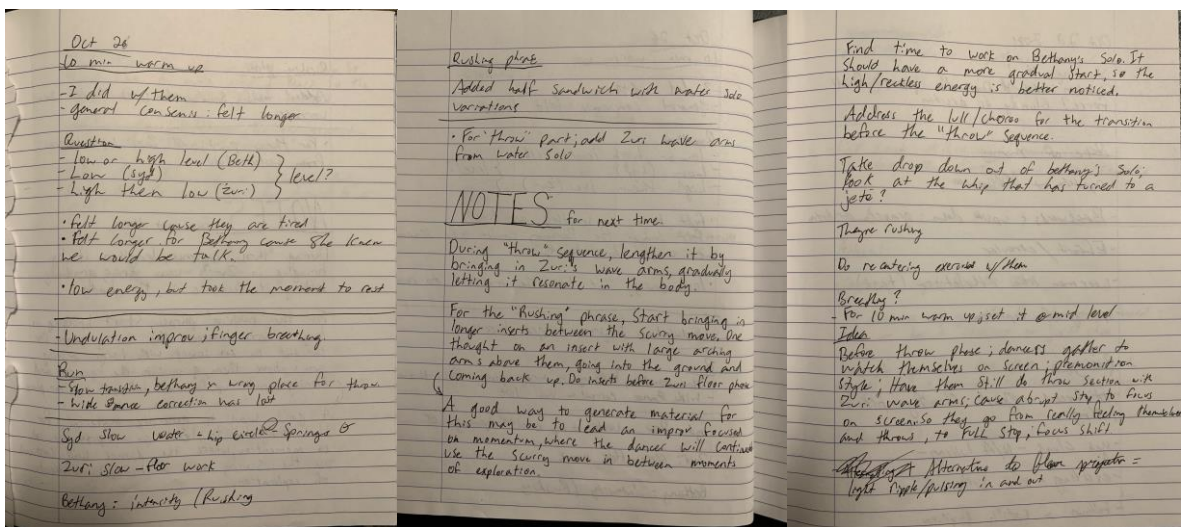 Oct 26
10 min warm up
- I did w/ them
- general consensis: felt longer
Question
- Low or high level (Beth)
- Low (syd)
- high then low (Zuri)
level?
• felt longer cause they are tired
• Felt longer for Bethany cause she knew
we would be talk.
• low energy, but took the moment to rest
- Undulation improv; finger breathing
Run
- Slow transition, bethany in wrong place for throw
- wide stance correction has lost
Syd slow water - hip circle - springs
Zuri slow - floor work
Bethany: intensity / Rushing
Rushing phrase
Added half sandwich with water solo
variations
• For "throw" part; add Zuri wave arms
from water solo
NOTES for next time.
During "throw" sequence, lengthen it by
bringing in Zuri's wave arms, gradually
letting it resonate in the body.
For the "Rushing" phrase, Start bringing in
longer inserts between the scurry move. One
thought on an insert with large arching
arms above them, going into the ground and
coming back up. Do inserts before Zuri floor phrase
A good way to generate material for
this may be to lead an improv focused
on momentum, where the dancer will continue
use the scurry move in between moments
of exploration.
Find time to work on Bethany's Solo. It
should have a more gradual start, so the
high/reckless energy is better noticed.
Address the lull/choreo for the transition
before the "throw" sequence.
Take drop down out of bethany's solo;
look at the whip that has turned to a
jeté?
Theyre rushing
Do recentering exercises w/ them
Breathy?
- For 10 min warm up; set it @ mid level
Idea
Before throw phase; dancers gather to
watch themselves on screen; premonition
style; Have them still do throw section with
Zuri wave arms; cause abrupt stop, to focus
on screen. So they go from really feeling themselves
and throws, to FULL Stop, focus shift
Alternative to projection =
light ripple/pulsing in and out